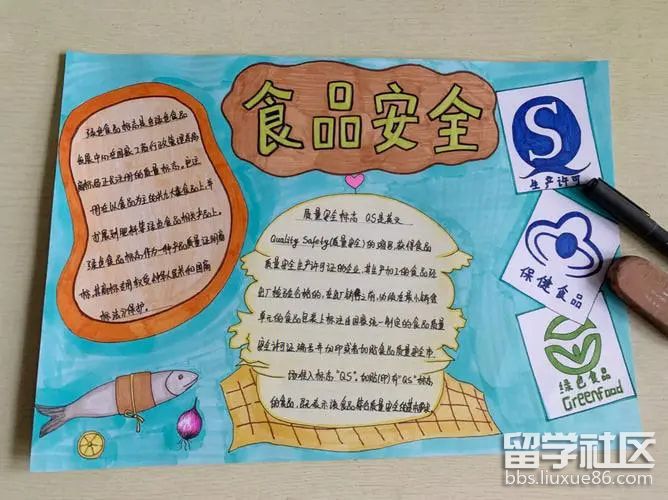 食品安全
绿色食品标志是由绿色食品
发展中心在国家工商行政管理总局
商标局正式注册的质量标志。它
用在以食品为主的
扩展到肥料等绿色食品相关产品上。
绿色食品标志作为一种产品质量证明商
标,其商标专用权受《中华人民共和国商
标法》保护。
质量安全标志 QS是英文
Quality Safety(质量安全)的缩写,获得食品
质量安全生产许可证的企业,其生产加工的食品经
出厂检验合格的,在出厂销售之前,必须在最小销售
单元的食品包装上标注由国家统一制定的食品质量
安全生产许可证编号并加印或者加贴食品质量安全市
场准入标志"QS"。加贴(印)有"QS"标志
的食品,既表示该食品符合质量安全的基本要求
生产许可
保健食品
绿色食品
Greenfood
留学社区
bbs.liuxue86.com